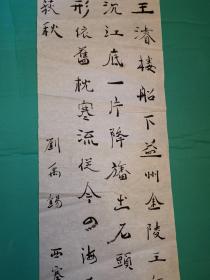 王濬楼船下益州金陵王
沉江底一片降旛出石頭
形依舊枕寒流從今四海
荻秋　劉禹錫　西塞